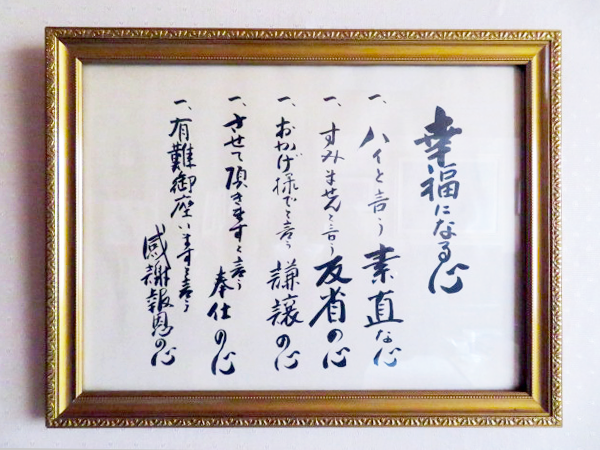 幸福になる心
一、ハイと言う素直な心
一、すみませんと言う反省の心
一、おかげ様でと言う謙譲の心
一、させて頂きますと言う奉仕の心
一、有難御座いますと言う感謝報恩の心